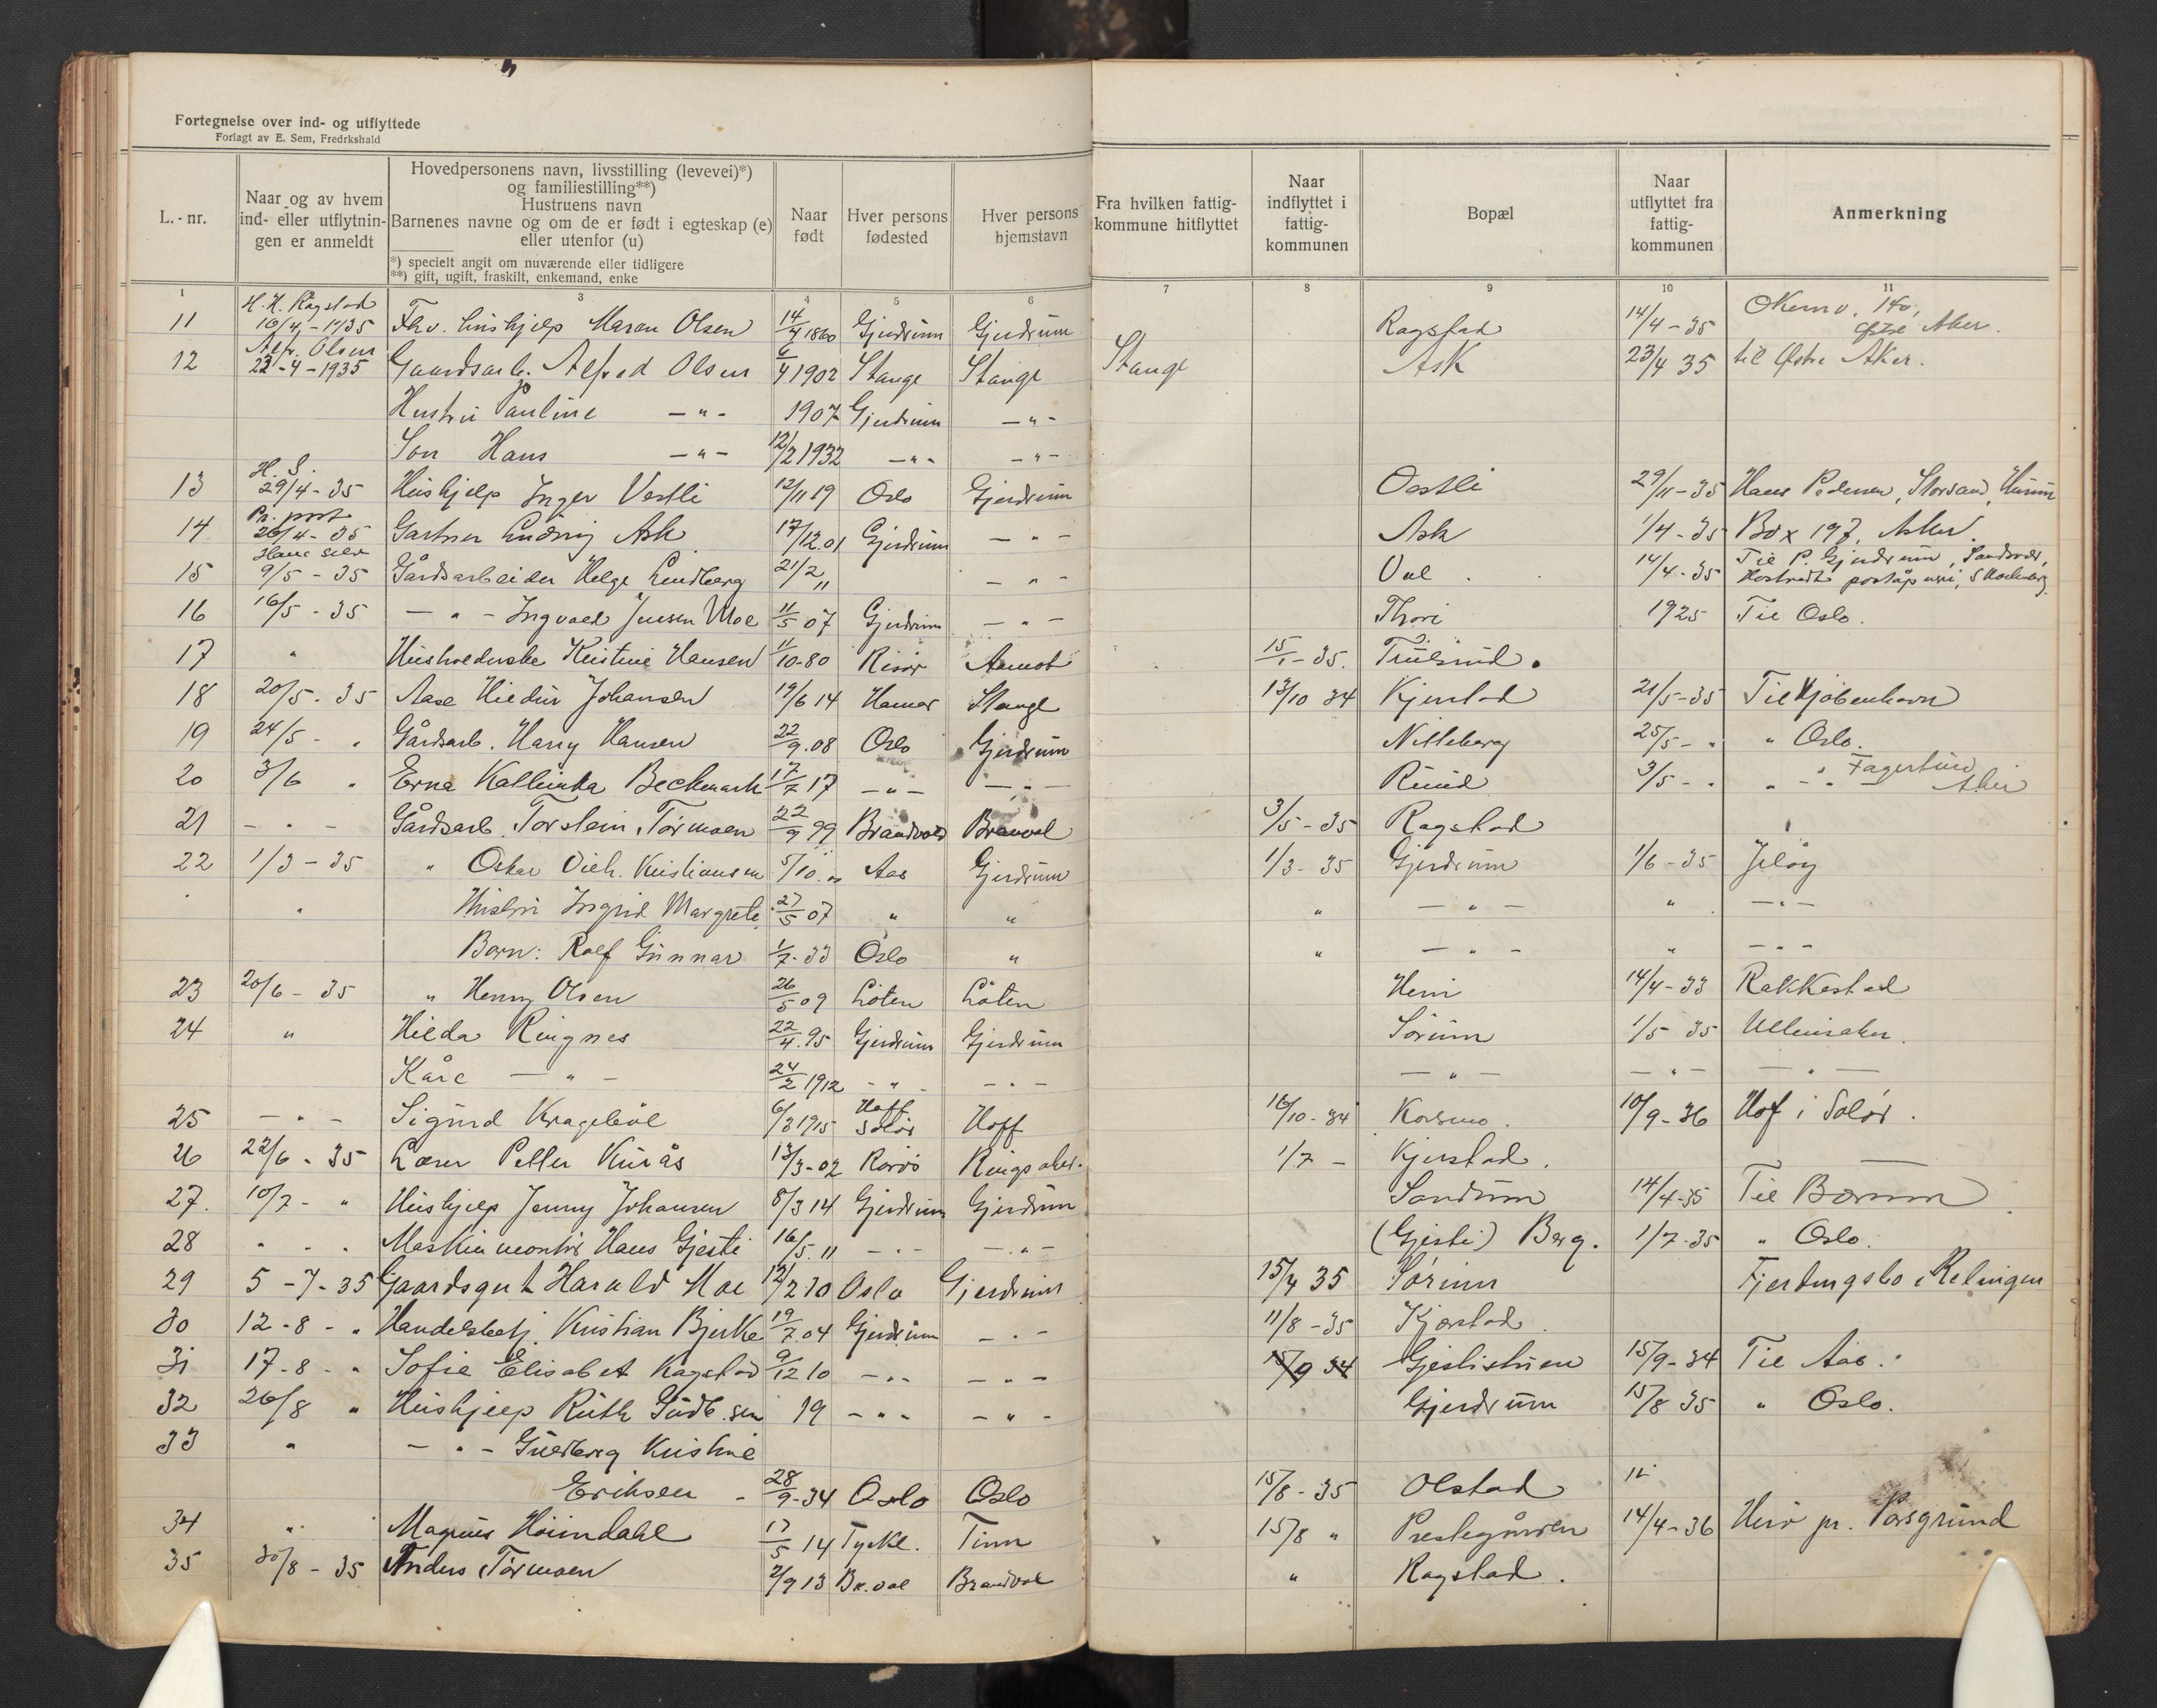 Fortegnelse over ind- og utflyttede
Forlagt av E. Sem, Fredrkshald
L.-nr.
Naar og av hvem ind- eller utflytningen er anmeldt
Hovedpersonens navn, livsstilling (levevei)*)
og familiestilling**)
Hustruens navn
Barnenes navne og om de er født i egteskap (e)
eller utenfor (u)
*) specielt angit om nuværende eller tidligere
**) gift, ugift, fraskilt, enkemand, enke
Naar født
Hver persons fødested
Hver persons hjemstavn
Fra hvilken fattig-kommune hitflyttet
Naar indflyttet i fattig-kommunen
Bopæl
Naar utflyttet fra fattig-kommunen
Anmerkning
1 3 4 5 6 7 8 9 10 11
11 H. H. Ragstad 10/4-1935 Fhv. hushjelp Maren Olsen 14/4 1860 Gjerdrum Gjerdrum Ragstad 14/4-35 Økernv. 140, Østre Aker.
12 Alfr. Olsen 22-4-1935 Gaardsarb. Alfred Olsen 6/4 1902 Stange Stange Stange Ask 23/4 35 til Østre Aker.
Hustru Pauline -"- 1907 Gjerdrum -"-
Søn Hans -"- 12/2 1932 -"- -"-
13 H. S. 29/4-35 Hushjelp Inger Vestli 12/11 19 Oslo Gjerdrum Østli 29/11-35 Hans Pedersen, Storsand, Hurum
14 Pr. post 26/4-35 Gartner Ludvig Ask 17/12.01 Gjerdrum -"- Ask 1/4-35 Box 197, Asker.
15 Hans selv 9/5-35 Gårdsarbeider Helge Lindberg 21/2 11 -"- 14/4-35 Til P. Gjerdrum, Sandsvær,
16 16/5-35 -"- Ingvald Jensen Moe 11/5 07 Gjerdrum -"- Thori 1925 Til Oslo.
17 " Husholderske Kristine Hansen 1/10-80 Risør Aamot 15/1-35. Trulsrud.
18 20/5-35 Aase Hildur Johansen 19/6 14 Hamar Stange 13/10 34 Kjerstad 21/5-35 Til Kjöbenhavn
19 24/5-" Gårdsarb. Harry Hansen 22/9.08 Oslo Gjerdrum Nitteberg 25/5-" " Oslo.
20 3/6 " Erna Kathinka Beckmark 17/7 17 -"- -"- Ruud 3/5-" " - " Fagertun Aker
21 -"- Gårdsarb. Torstein Törmoen 22/9 99 Brandvold Branval 3/5-35 Ragstad
22 1/3-35 " Oskar Vilh. Kristiansen 5/10. Aas Gjerdrum 1/3-35 Gjerdrum 1/6-35 Jeløy
" Hustru Ingrid Margrete 27/5 07 " " " -"- " -"-
Barn: Rolf Gunnar 1/7-33 Oslo " " -"- " -"-
23 20/6-35 " Henry Olsen 26/5 09 Löten Löten Heni 14/4-33 Rakkestad
24 " Hilda Ringnes 22/4.95 Gjerdrum Gjerdrum Sörum 1/5 35 Ullensaker.
Kåre -"- 24/2 1912 -"- -"- -"- -"- -"-
25 -"- Sigurd Krageböl 6/3 1915 Hoff Solör Hoff 16/10-34 Korsmo. 10/9-36 Hof i Solör.
26 22/6-35 Lærer Petter Kurås 13/3-02 Rörös Ringsaker. 1/7- Kjerstad.
27. 10/7-" Hushjelp Jenny Johansen 8/3 14 Gjerdrum Gjerdrum Sandum 14/4-35 Til Bærum
28 " " " Maskinmontør Hans Gjesti 16/5.11 -"- -"- (Gjesti) Berg. 1/7-35 " Oslo.
29 5-7-35 Gaardsgut Harald Moe 12/2 20 Oslo Gjerdrum 15/4 35 Sörum Fjerdingsbo i Relingen
30 12-8-" Handelsbetj. Kristian Bjerke 19/7.04 Gjerdrum -"- 11/8-35 Kjærstad.
31 17-8-" Sofie Elisabet Ragstad 9/12 10 -"- -"- 15/9 34 Gjestistuen 15/9-34 Til Aas.
32 26/8 " Hushjelp Ruth Gudb.sen 19 -"- -"- Gjerdrum 15/8 35 " Oslo.
33 " -"- Guldborg Kristine
Eriksen - 28/9-34 Oslo Oslo 15/8-35 Olstad
34 " Magnus Höimdahl 17/5 14 Tyskl. Tinn 15/8 " Prestegården 14/4-36 Herö pr. Porsgrund
35 30/8-35 Anders Törmoen 2/9 13 Br.val Brandval " Ragstad.